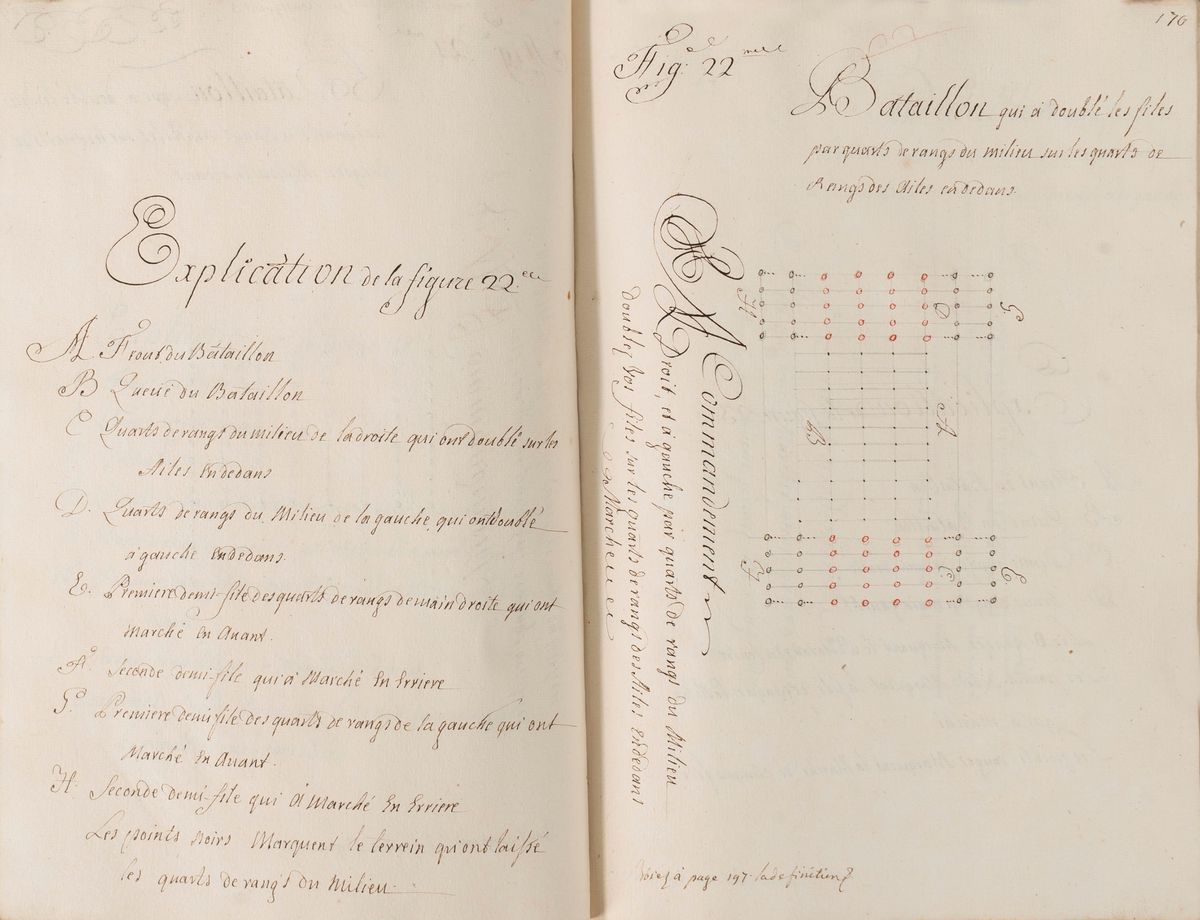 Explication de la figure 22.eme
A Front du Bataillon
B Queüe du Bataillon
C Quarts de rangs du milieu de la droite qui ont doublé sur les
Ailes en dedans
D. Quarts de rangs du Milieu de la gauche qui ont doublé
à gauche en dedans
E. Premiere demi-file des quarts de rangs de main droite qui ont
Marché en Avant.
F. Seconde demi-file qui à Marché en Erriere
G. Premiere demi file des quarts de rangs de la gauche qui ont
Marché en Avant.
H. Seconde demi-file qui à Marché En Erriere
Les points noirs Marquent le terrein qu'ont laissé
les quarts de rangs du Milieu.
176
Fig: 22
Bataillon qui à doublé les files
par quarts de rangs du milieu sur les quarts de
Rangs des Ailes en dedans
Commandement
A Droit, et à gauche par quarts de rangs du Milieu
doublez vos files sur les quarts de rangs des Ailes en dedans
Marche
H D G
B A
F C E
Voiez à page 197 la definition